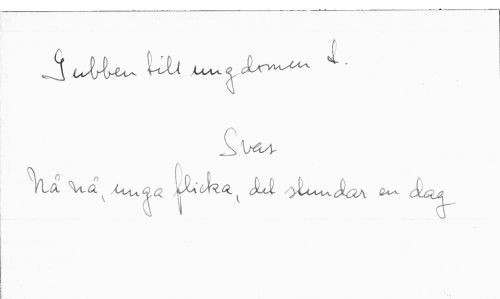 Gubben till ungdomen
Svar
Nå nå, unga flicka, det stundar en dag